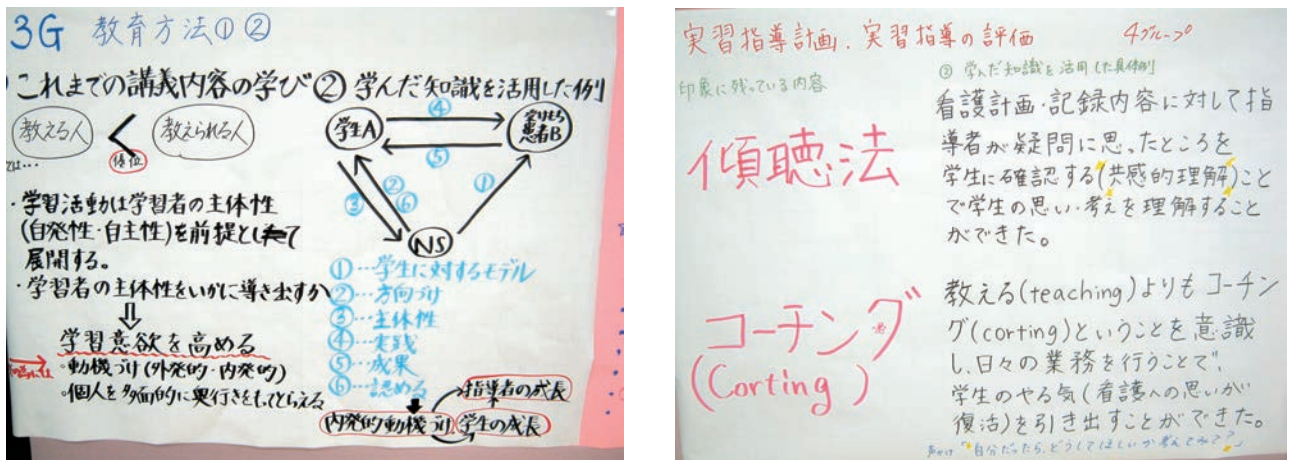 3G 教育方法① ②
これまでの講義内容の学び
教える人 < 教えられる人
優位
では…
・学習活動は学習者の主体性
(自発性・自主性)を前提として
展開する。
・学習者の主体性をいかに導き出すか
⇩
学習意欲を高める
・動機づけ(外発的・内発的)
・個人を多面的に奥行きをもってとらえる
② 学んだ知識を活用した例
学生A
④
⑤
受けもち
患者B
③
②
⑥
①
NS
①…学生に対するモデル
②…方向づけ
③…主体性
④…実践
⑤…成果
⑥…認める
内発的動機づけ
指導者の成長
学生の成長
実習指導計画.実習指導の評価 4グループ
印象に残っている内容
傾聴法
コーチング
(Corting)
② 学んだ知識を活用した具体例
看護計画・記録内容に対して指
導者が疑問に思ったところを
学生に確認する(共感的理解)こと
で学生の思い・考えを理解すること
ができた。
教える(teaching)よりもコーチン
グ(corting)ということを意識
し、日々の業務を行うことで、
学生のやる気(看護への思いが
復活)を引き出すことができた。
声かけ「自分だったら、どうしてほしいか考えてみて?」